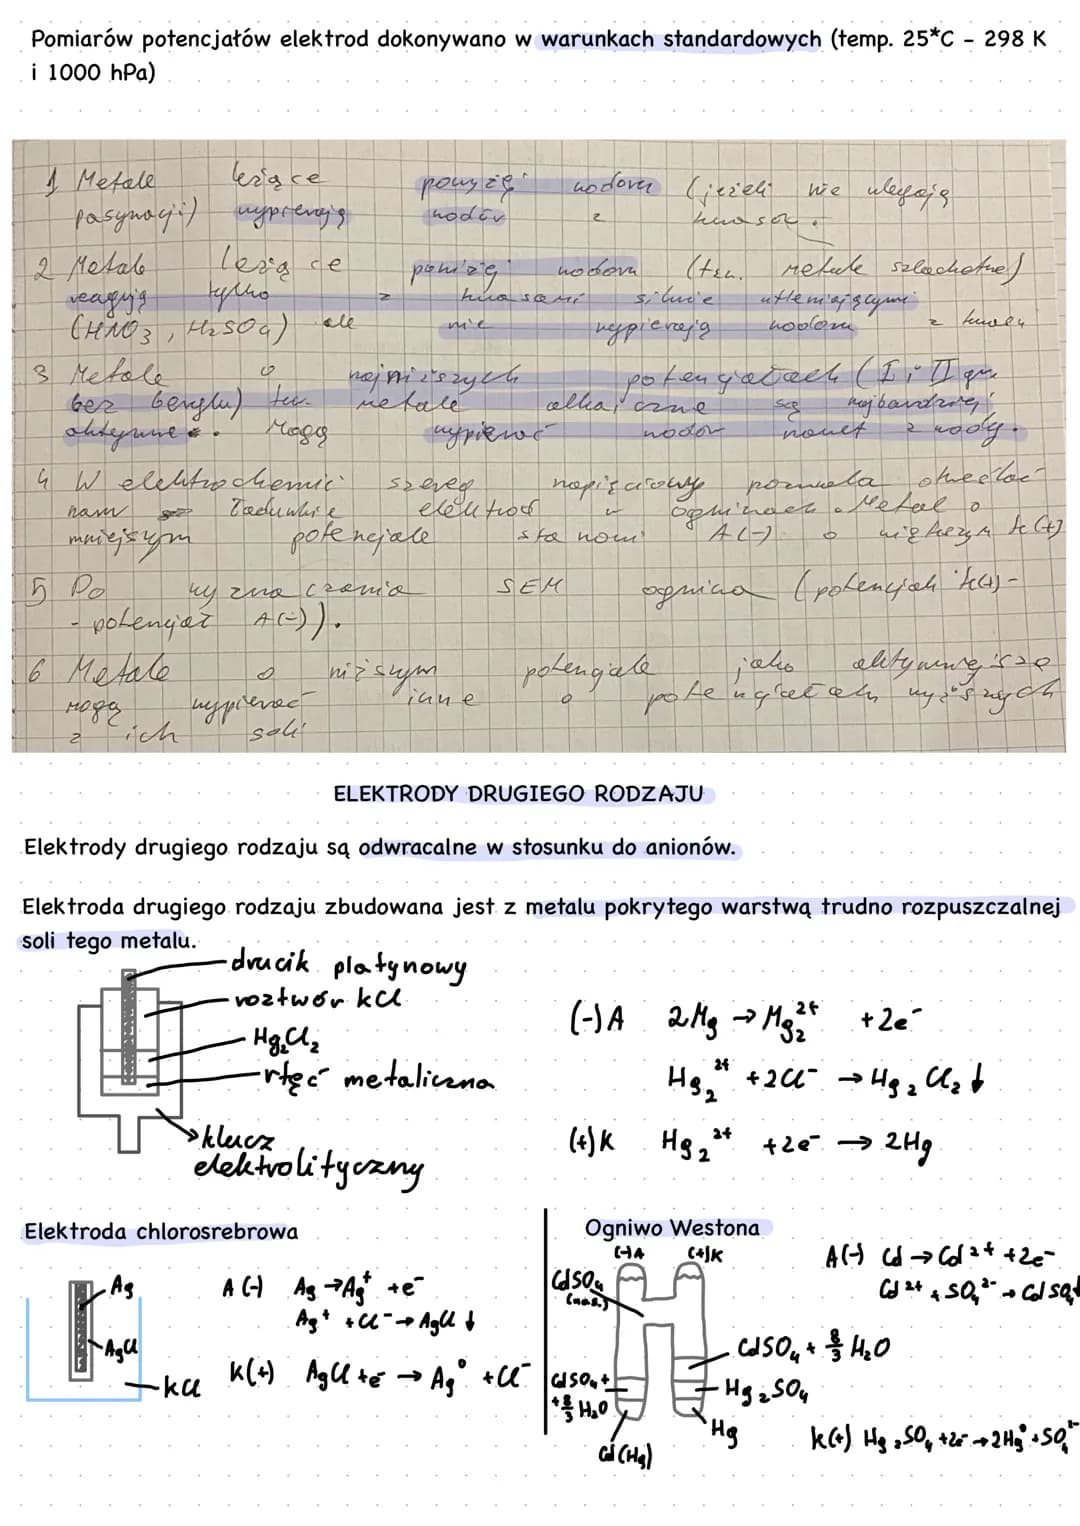 Pomiarów potencjałów elektrod dokonywano w warunkach standardowych (temp. 25*C - 298 K
i 1000 hPa)
1 Metale leżące powyżej wodoru (jeżeli nie ulegają
pasywacji) wypierają wodór z kwasów.
2 Metale leżące poniżej wodoru (tzw. metale szlachetne)
reagują tylko z kwasami silnie utleniającymi
(HNO3, H2SO4) ale nie wypierają wodoru z kwasu
3 Metale o najniższych potencjałach (I i II gr.
bez berylu) tzw. metale alkaliczne są najbardziej
aktywne. Mogą wypierać wodór nawet z wody.
4 W elektrochemii szereg napięciowy pozwala określać
nam ładunkie elektrod w ogniwach. Metal o
mniejszym potencjale stanowi A(-) o większym K(+)
5 Do wyznaczenia SEM ogniwa (potencjał K(+)-
- potencjał A(-)).
6 Metale o niższym potencjale jako aktywniejsze
mogą wypierać inne o potencjałach wyższych
z ich soli
ELEKTRODY DRUGIEGO RODZAJU
Elektrody drugiego rodzaju są odwracalne w stosunku do anionów.
Elektroda drugiego rodzaju zbudowana jest z metalu pokrytego warstwą trudno rozpuszczalnej
soli tego metalu.
drucik platynowy
roztwór KCl
Hg₂Cl₂
rtęć metaliczna
klucz
elektrolityczny
(-)A 2Hg → Hg₂²⁺ +2e⁻
Hg₂²⁺ +2Cl⁻ → Hg₂Cl₂↓
(+)K Hg₂²⁺ +2e⁻ → 2Hg
Elektroda chlorosrebrowa
Ag
AgCl
KCl
A(-) Ag → Ag⁺ +e⁻
Ag⁺ +Cl⁻ → AgCl↓
K(+) AgCl +e⁻ → Ag⁰ +Cl⁻
Ogniwo Westona
(-)A (+)K
CdSO₄
(nas.)
CdSO₄+
+8/3 H₂O
Cd(Hg)
CdSO₄ + 8/3 H₂O
Hg₂SO₄
Hg
A(-) Cd → Cd²⁺ +2e⁻
Cd²⁺ + SO₄²⁻ → CdSO₄↓
K(+) Hg₂SO₄ +2e⁻ → 2Hg⁰ + SO₄²⁻